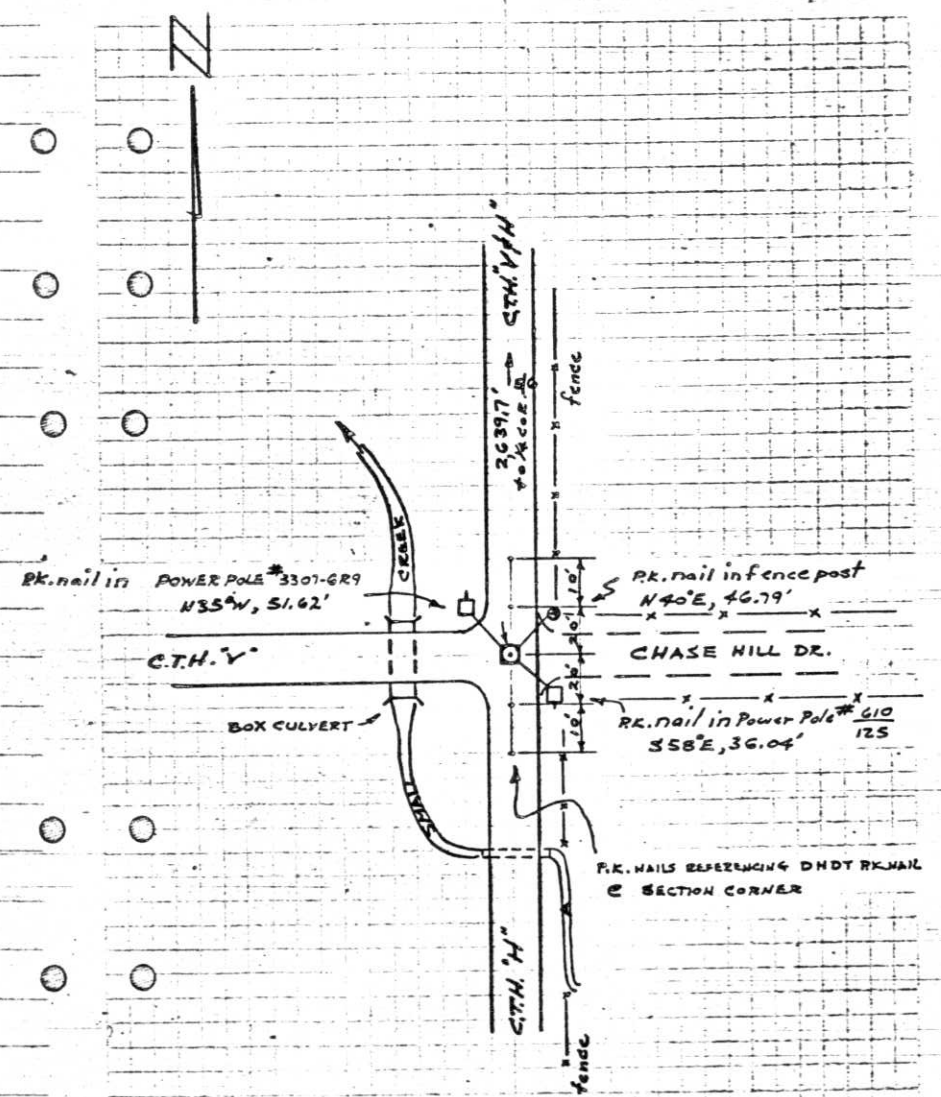 N
C.T.H. "V & H"
2,639.7'
to 1/4 cor.
fence
CREEK
P.K. nail in POWER POLE #3307-6R9
N35°W, 51.62'
P.K. nail in fence post
N40°E, 46.79'
10'
20'
20'
10'
C.T.H. "V"
CHASE HILL DR.
BOX CULVERT
P.K. nail in Power Pole # 610
125
S58°E, 36.04'
SMALL
P.K. NAILS REFERENCING DHDT P.K. NAIL
@ SECTION CORNER
C.T.H. "H"
fence